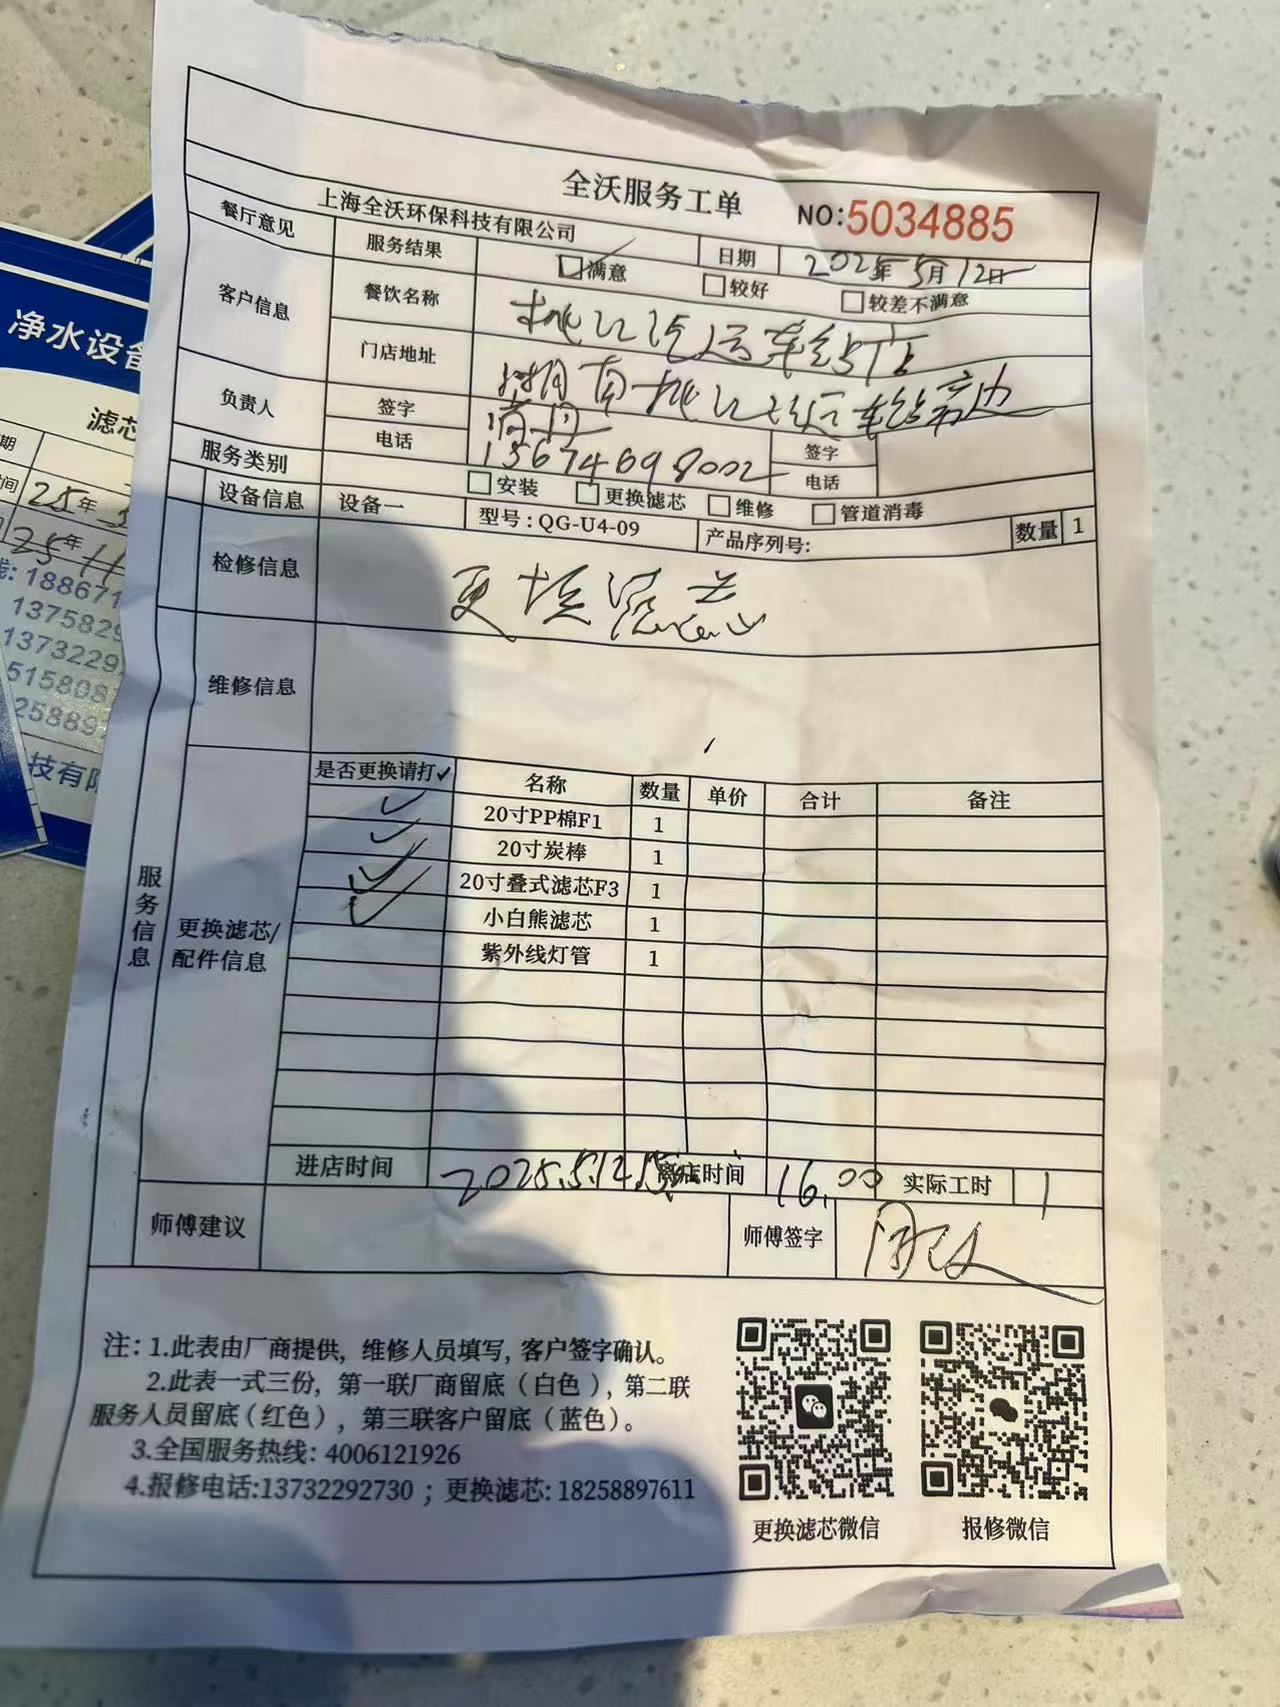 全沃服务工单
NO:5034885
上海全沃环保科技有限公司
日期 2025年5月12日
餐厅意见 服务结果 满意 较好 较差不满意
客户信息 餐饮名称 桃江汽运车站店
门店地址 湖南桃江
负责人 签字 签字
电话 15674698002 电话
服务类别 安装 更换滤芯 维修 管道消毒
设备信息 设备一 型号:QG-U4-09 产品序列号: 数量 1
检修信息 更换滤芯
维修信息
服务信息
更换滤芯/
配件信息
是否更换请打✓ 名称 数量 单价 合计 备注
✓ 20寸PP棉F1 1
✓ 20寸炭棒 1
✓ 20寸叠式滤芯F3 1
✓ 小白熊滤芯 1
紫外线灯管 1
进店时间 2025.5.12 离店时间 16.00 实际工时 1
师傅建议 师傅签字
注: 1.此表由厂商提供, 维修人员填写, 客户签字确认。
2.此表一式三份, 第一联厂商留底(白色), 第二联
服务人员留底(红色), 第三联客户留底(蓝色)。
3.全国服务热线: 4006121926
4.报修电话:13732292730 ; 更换滤芯: 18258897611
更换滤芯微信
报修微信
净水设备
滤芯
期
时间 25年
25年11
线: 188671
137582
1373229
515808
25889
技有限